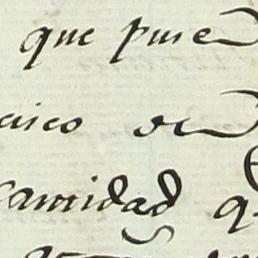 que puse
cisco de
cantidad q